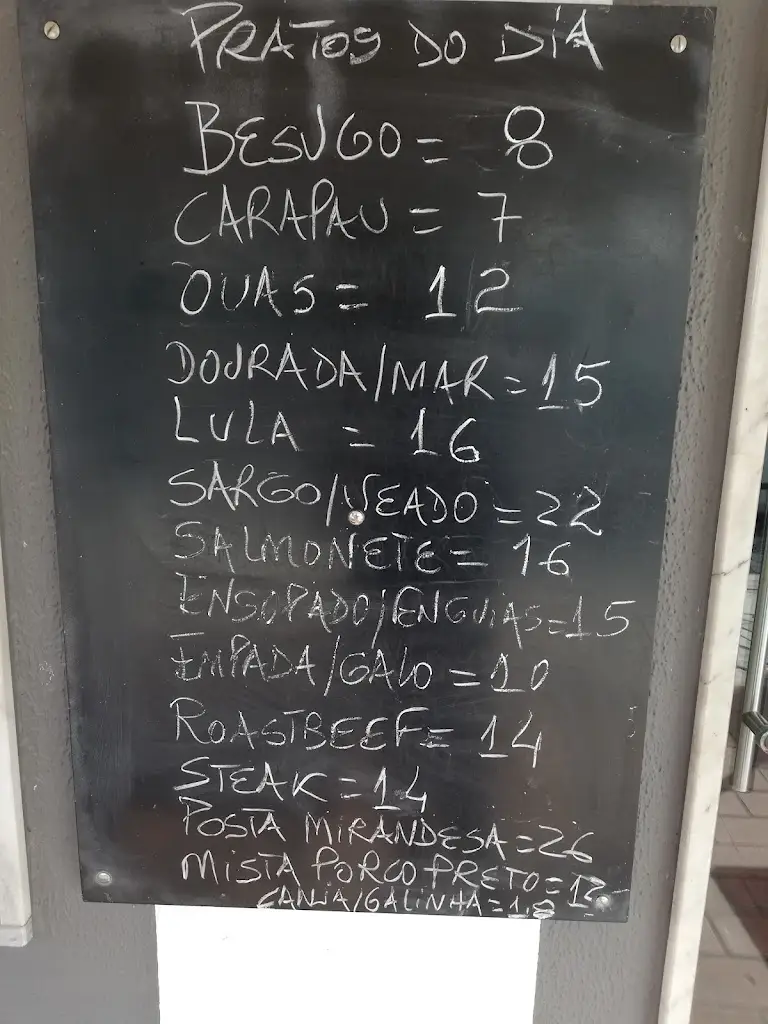 PRATOS DO DIA
BESUGO = 8
CARAPAU = 7
OVAS = 12
DOURADA/MAR = 15
LULA = 16
SARGO/VEADO = 22
SALMONETE = 16
ENSOPADO/ENGUIAS = 15
EMPADA/GALO = 10
ROASTBEEF = 14
STEAK = 14
POSTA MIRANDESA = 26
MISTA PORCO PRETO = 13
CANJA/GALINHA = 1,8